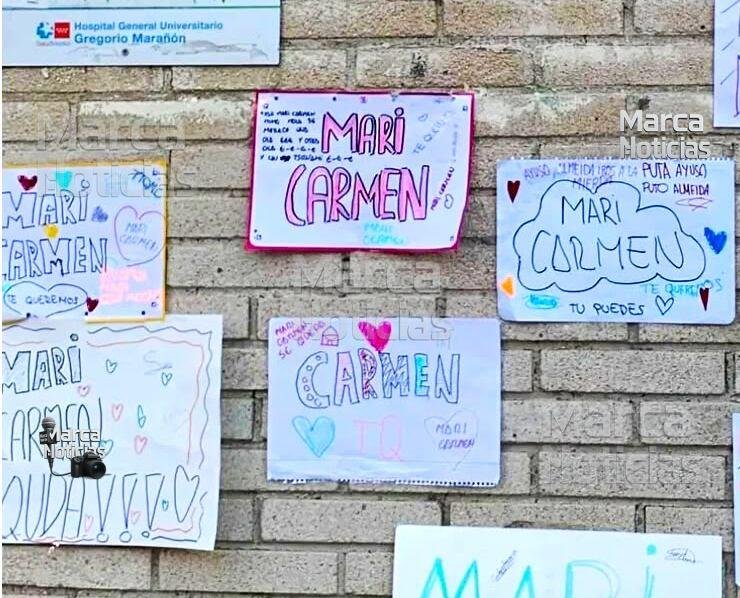 Hospital General Universitario
Gregorio Marañón
MARI
CARMEN
TE QUEREMOS
MARI
CARMEN
MARI
CARMEN
TE QUEREMOS
MARI CARMEN
MARI
CARMEN
AYUSO, ALMEIDA IROS A LA
MIERDA
PUTA AYUSO
PUTO ALMEIDA
MARI
CARMEN
TE QUEREMOS
TU PUEDES
MARI
CARMEN
QUDA!!!!
MARI
CARMEN
SE QUEDA
CARMEN
TQ
MARI
CARMEN
MARI
Marca
Noticias
Marca
Noticias
Marca
Noticias
Marca
Noticias
Marca
Noticias